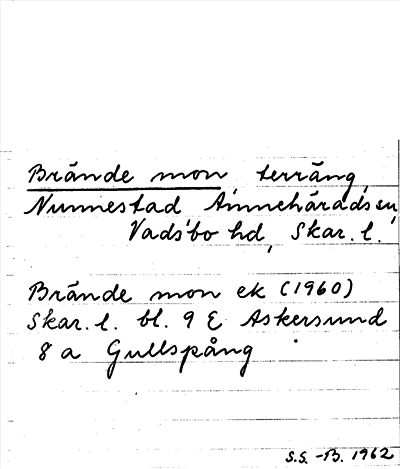 Brände mon, terräng,
Nunnestad, Amnehärads sn,
Vadsbo hd, Skar. l.
Brände mon ek (1960)
Skar. l. bl. 9 E Askersund
8 a Gullspång
S.S. -B. 1962